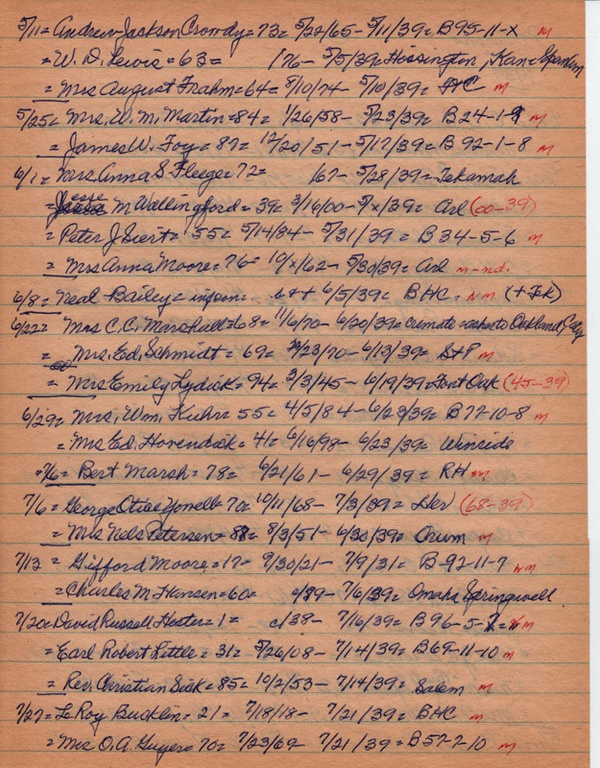 5/11= Andrew Jackson Crowdy= 73= 5/22/65- 5/11/39= B95-11-X m
= W. D. Lewis= 63= 176- 5/5/39= Hoisington, Kan=
= Mrs August Frahm= 64= 8/10/74- 5/10/39= HC m
5/25= Mrs. W. M. Martin= 84= 1/26/58- 5/23/39= B24-1-9 m
= James W. Foy= 87= 12/20/51- 5/17/39= B 92-1-8 m
6/1= Mrs Anna S Fleege= 72= 167- 5/28/39= Tekamah
= Jesse M Wallingford= 39= 3/16/00- 5/x/39= Arl (00-39)
= Peter J Siert= 55= 5/14/84- 5/31/39= B34-5-6 m
= Mrs Anna Moore= 76= 10/x/62- 5/30/39= Arl m-nd.
6/8= Neal Bailey= 6/5/39= BHC. Nm
6/22= Mrs C.C. Marshall= 68= 11/6/70- 6/20/39= cremate= Oakland, City
= Mrs. Ed. Schmidt= 69= /23/70- 6/13/39= S+P m
= Mrs Emily Lydick= 94= 3/3/45- 6/19/39= Font Oak (45-39)
6/29= Mrs. Wm. Kuhr= 55= 4/5/84- 6/23/39= B77-10-8 m
= Mrs Ed. Hovendick= 41= 6/16/98- 6/23/39= Winside
7/6= Bert Marsh= 78= 6/21/61- 6/29/39= RH m
7/6= George Otice 70= 10/11/68- 7/3/39= Her (68-39)
= Mrs Nels Petersen= 88= 8/3/51- 6/30/39= Orum m
7/13= Gifford Moore= 17= 9/30/21- 7/9/31= B-92-11-7 Nm
= Charles M Hansen= 60= c/89- 7/6/39= Omaha Springwell
7/20= David Russell Hester= 1= c/38- 7/16/39= B96-5- m
= Earl Robert Little= 31= 5/26/08- 7/14/39= B69-11-10 m
= Rev. Christian Sick= 85= 10/2/53- 7/14/39= Salem m
7/27= Le Roy Bucklin= 21= 7/18/18- 7/21/39= BHC m
= Mrs O.A. Guyer= 70= 7/23/69- 7/21/39= B57-7-10 m